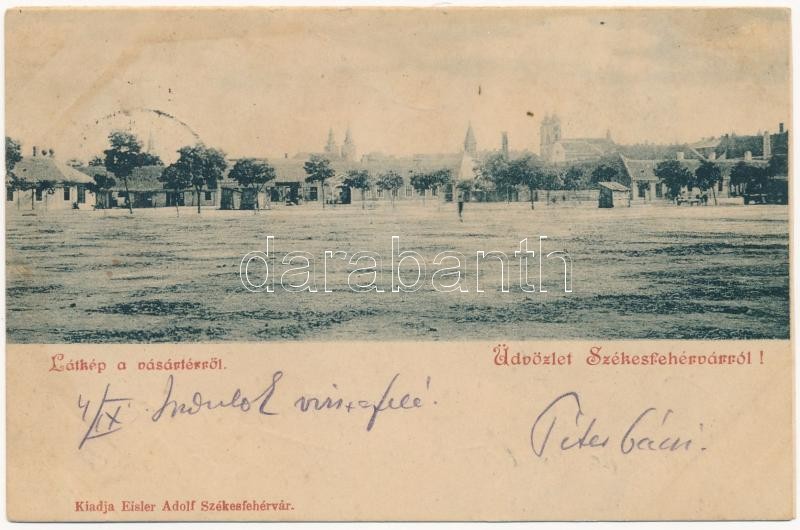 darabanth
Látkép a vásártérről.
Üdvözlet Székesfehérvárról !
4/IX Indulok visszafelé.
Péter bácsi.
Kiadja Eisler Adolf Székesfehérvár.